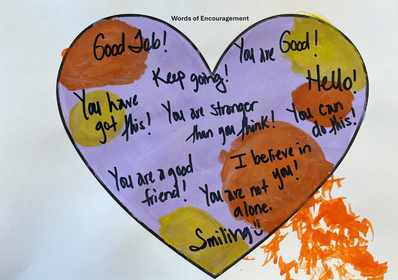 Words of Encouragement
Good Job!
You are Good!
Keep going!
Hello!
You have
got this!
You are stronger
than you think!
You can
do this!
You are a good
friend!
I believe in
you!
You are not
alone.
Smiling